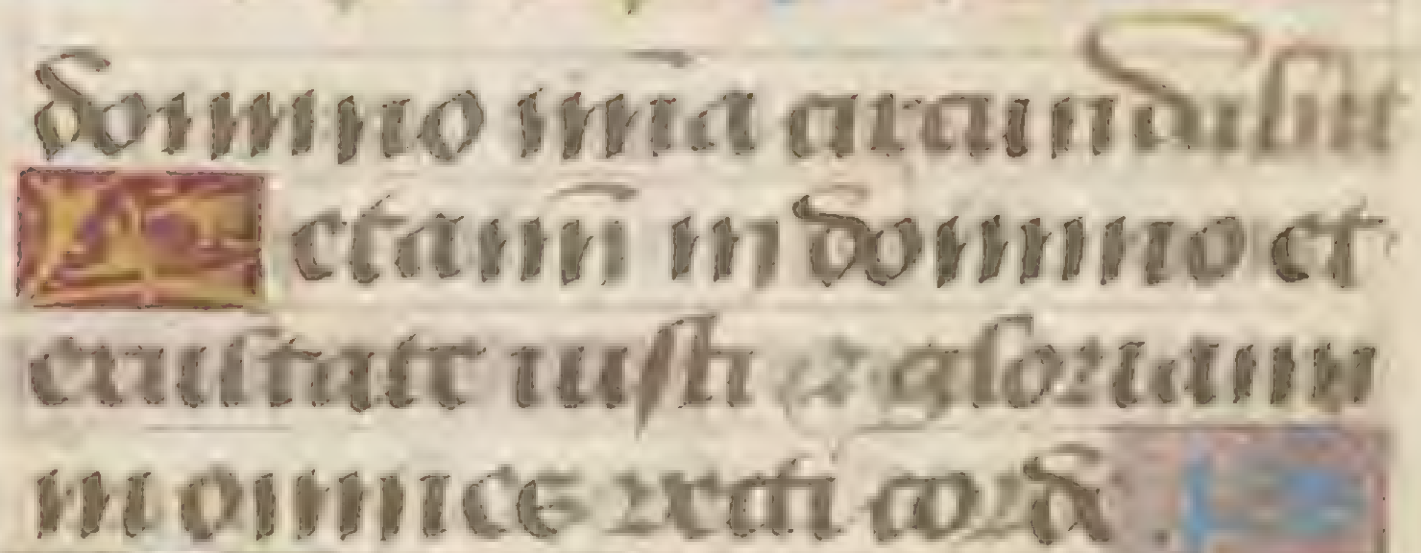 domino mi͞a circundabit
Letami͞ni in domino et
exultate iusti & gloriamini
in omnes recti cord